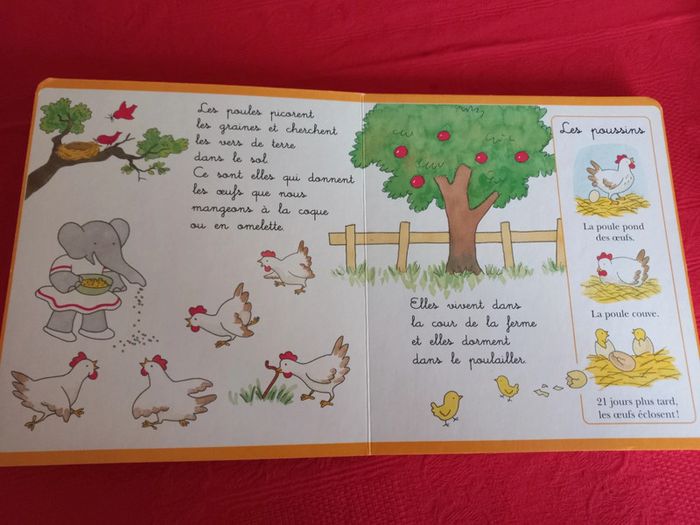 Les poules picorent
les graines et cherchent
les vers de terre
dans le sol.
Ce sont elles qui donnent
les œufs que nous
mangeons à la coque
ou en omelette.
Elles vivent dans
la cour de la ferme
et elles dorment
dans le poulailler.
Les poussins
La poule pond
des œufs.
La poule couve.
21 jours plus tard,
les œufs éclosent !